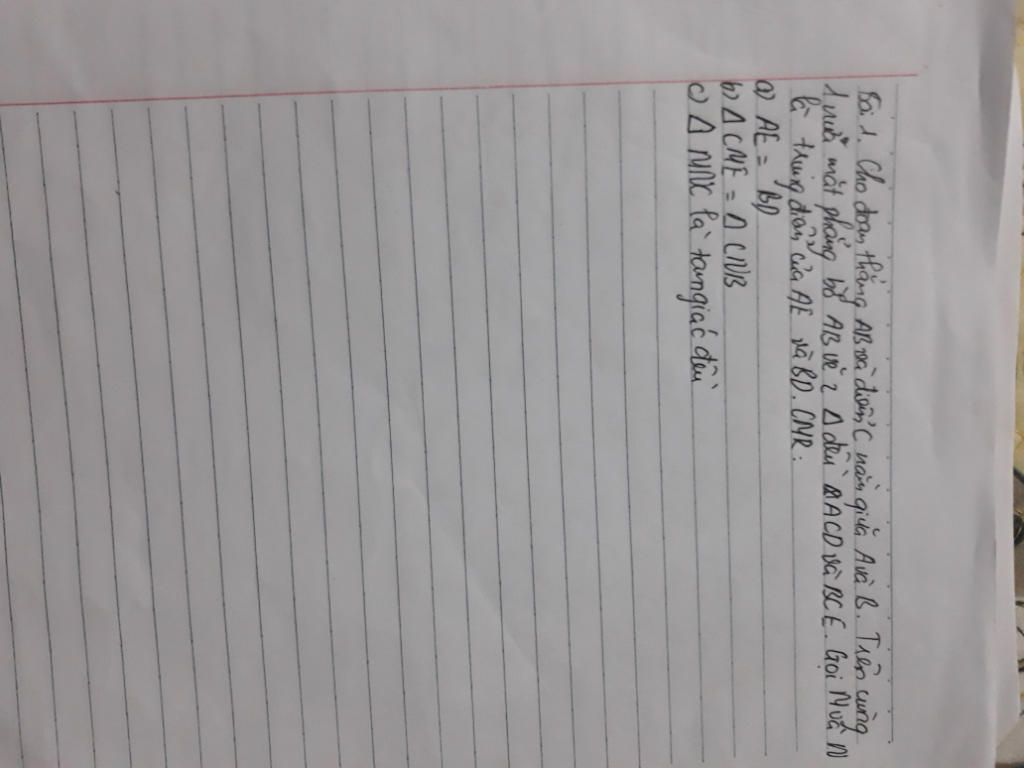 Bài 1. Cho đoạn thẳng AB và điểm C nằm giữa A và B. Trên cùng
1 nửa mặt phẳng bờ AB vẽ 2 Δ đều ΔACD và BCE. Gọi M và N
là trung điểm của AE và BD. CMR:
a) AE = BD
b) Δ CME = Δ CNB
c) Δ MNC là tam giác đều